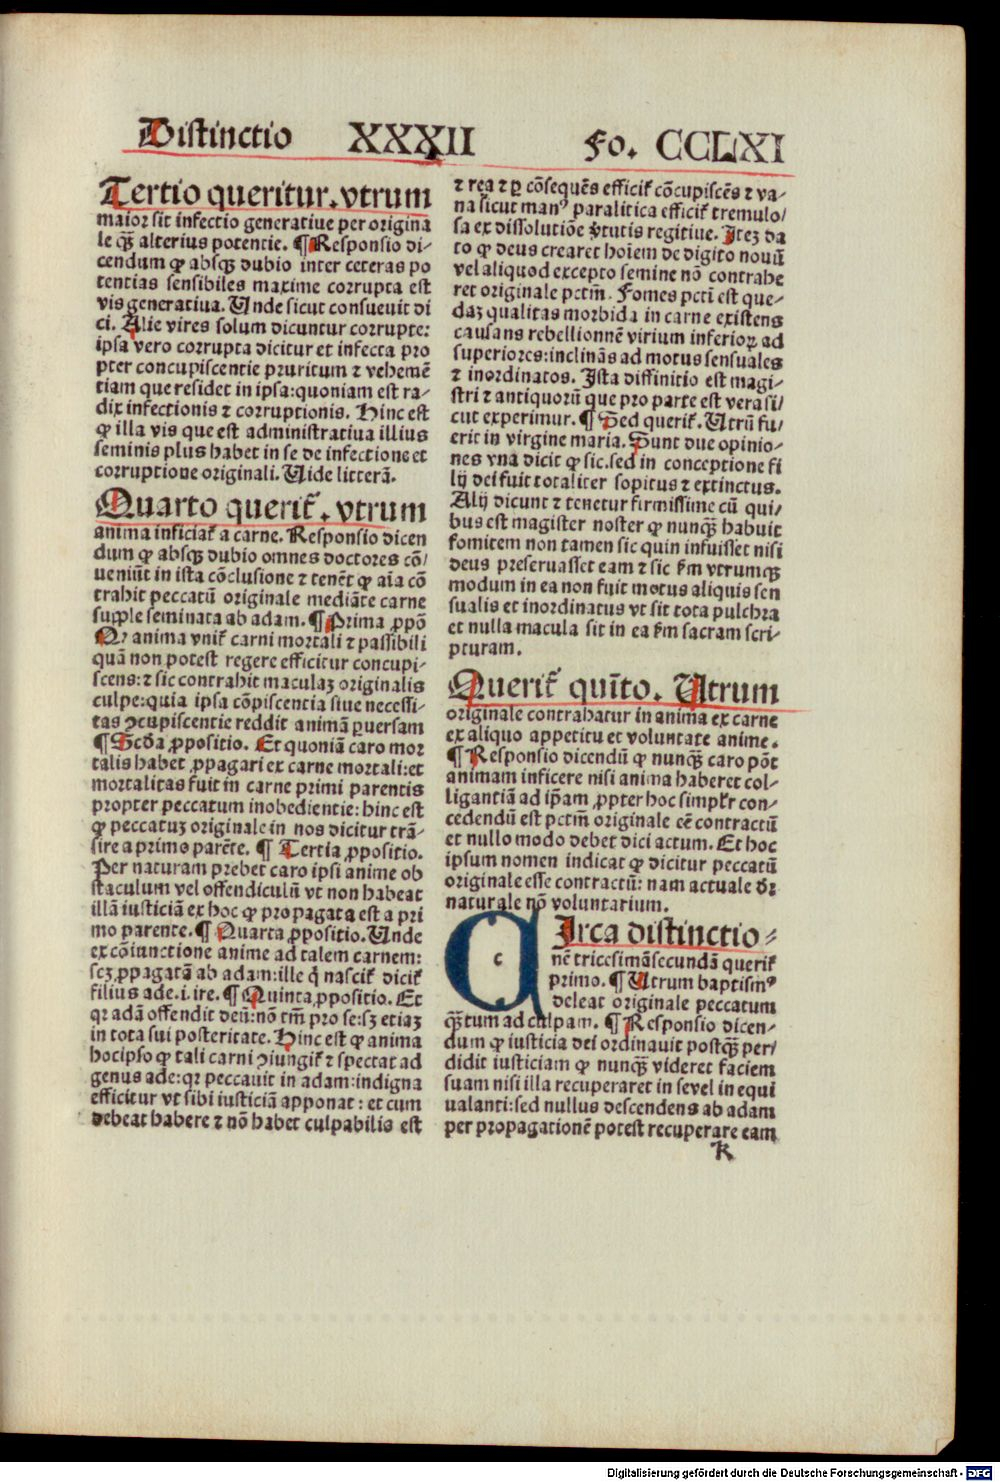 Distinctio XXXII Fo. CCLXI
Tertio queritur. vtrum
maior sit infectio generatiue per origina
le qꝫ̄ alterius potentie. ¶ Responsio di-
cendum ꝙ absqꝫ dubio inter ceteras po
tentias sensibiles maxime corrupta est
vis generatiua. Unde sicut consueuit di
ci. Alie vires solum dicuntur corrupte:
ipsa vero corrupta dicitur et infecta pro
pter concupiscentie pruritum ⁊ vehemē
tiam que residet in ipsa: quoniam est ra-
dix infectionis ⁊ corruptionis. Hinc est
ꝙ illa vis que est administratiua illius
seminis plus habet in se de infectione et
corruptione originali. Uide litterā.
Quarto querit᷑. vtrum
anima inficiat᷑ a carne. Responsio dicen
dum ꝙ absqꝫ dubio omnes doctores cō/
ueniūt in ista cōclusione ⁊ tenēt ꝙ aīa cō
trahit peccatū originale mediāte carne
supple seminata ab adam. ¶ Prima ꝓpō
Qꝛ anima vnit᷑ carni mortali ⁊ passibili
quā non potest regere efficitur concupi-
scens: ⁊ sic contrahit maculaꝫ originalis
culpe: quia ipsa cōpiscentia siue necessi-
tas ꝯcupiscentie reddit animā ꝑuersam
¶ Scd̄a ꝓpositio. Et quoniā caro mor
talis habet ꝓpagari ex carne mortali: et
mortalitas fuit in carne primi parentis
propter peccatum inobedientie: hinc est
ꝙ peccatuꝫ originale in nos dicitur trā-
sire a primo parēte. ¶ Tertia ꝓpositio.
Per naturam prebet caro ipsi anime ob
staculum vel offendiculū vt non habeat
illā iusticiā ex hoc ꝙ propagata est a pri
mo parente. ¶ Quarta ꝓpositio. Unde
ex cōiunctione anime ad talem carnem:
scꝫ ꝓpagatā ab adam: ille q̄ nascit᷑ dicit᷑
filius ade. i. ire. ¶ Quinta ꝓpositio. Et
qꝛ adā offendit deū: nō tm̄ pro se: sꝫ etiaꝫ
in tota sui posteritate. Hinc est ꝙ anima
hocipso ꝙ tali carni ꝯiungit᷑ ⁊ spectat ad
genus ade: qꝛ peccauit in adam: indigna
efficitur vt sibi iusticiā apponat: et cum
debeat habere ⁊ nō habet culpabilis est
⁊ rea ⁊ ꝑ cōsequēs efficit᷑ cōcupiscēs ⁊ va-
na sicut manꝰ paralitica efficit᷑ tremulo/
sa ex dissolutiōe v̄tutis regitiue. Iteꝫ da
to ꝙ deus crearet hoīem de digito nouū
vel aliquod excepto semine nō contrahe
ret originale pctm̄. Fomes pctī est que-
daꝫ qualitas morbida in carne existens
causans rebellionnē virium inferioꝝ ad
superiores: inclināS ad motus sensuales
⁊ inordinatos. Ista diffinitio est magi-
stri ⁊ antiquorū que pro parte est vera si/
cut experimur. ¶ Sed querit᷑. Utrū fu/
erit in virgine maria. Sunt due opinio-
nes vna dicit ꝙ sic. sed in conceptione fi
lij dei fuit totaliter sopitus ⁊ extinctus.
Alij dicunt ⁊ tenetur firmissime cū qui/
bus est magister noster ꝙ nunqꝫ̄ habuit
fomitem non tamen sic quin infuisset nisi
deus preseruasset eam ⁊ sic s̄m vtrumqꝫ
modum in ea non fuit motus aliquis sen
sualis et inordinatus vt sit tota pulchra
et nulla macula sit in ea s̄m sacram scri-
pturam.
Querit᷑ quīto. Utrum
originale contrahatur in anima ex carne
ex aliquo appetitu et voluntate anime.
¶ Responsio dicendū ꝙ nunqꝫ̄ caro pōt
animam inficere nisi anima haberet col-
ligantiā ad ip̄am ꝓpter hoc simpłr con-
cedendū est pctm̄ originale eē contractū
et nullo modo debet dici actum. Et hoc
ipsum nomen indicat ꝙ dicitur peccatū
originale esse contractū: nam actuale dr̄
naturale nō voluntarium.
c Irca distinctio-
nē tricesimāsecundā querit᷑
primo. ¶ Utrum baptismꝰ
deleat originale peccatum
qꝫ̄tum ad culpam. ¶ Responsio dicen-
dum ꝙ iusticia dei ordinauit postqꝫ̄ per/
didit iusticiam ꝙ nunqꝫ̄ videret faciem
suam nisi illa recuperaret in se vel in equi
ualanti: sed nullus descendens ab adam
per propagationē potest recuperare eam
K
Digitalisierung gefördert durch die Deutsche Forschungsgemeinschaft - DFG